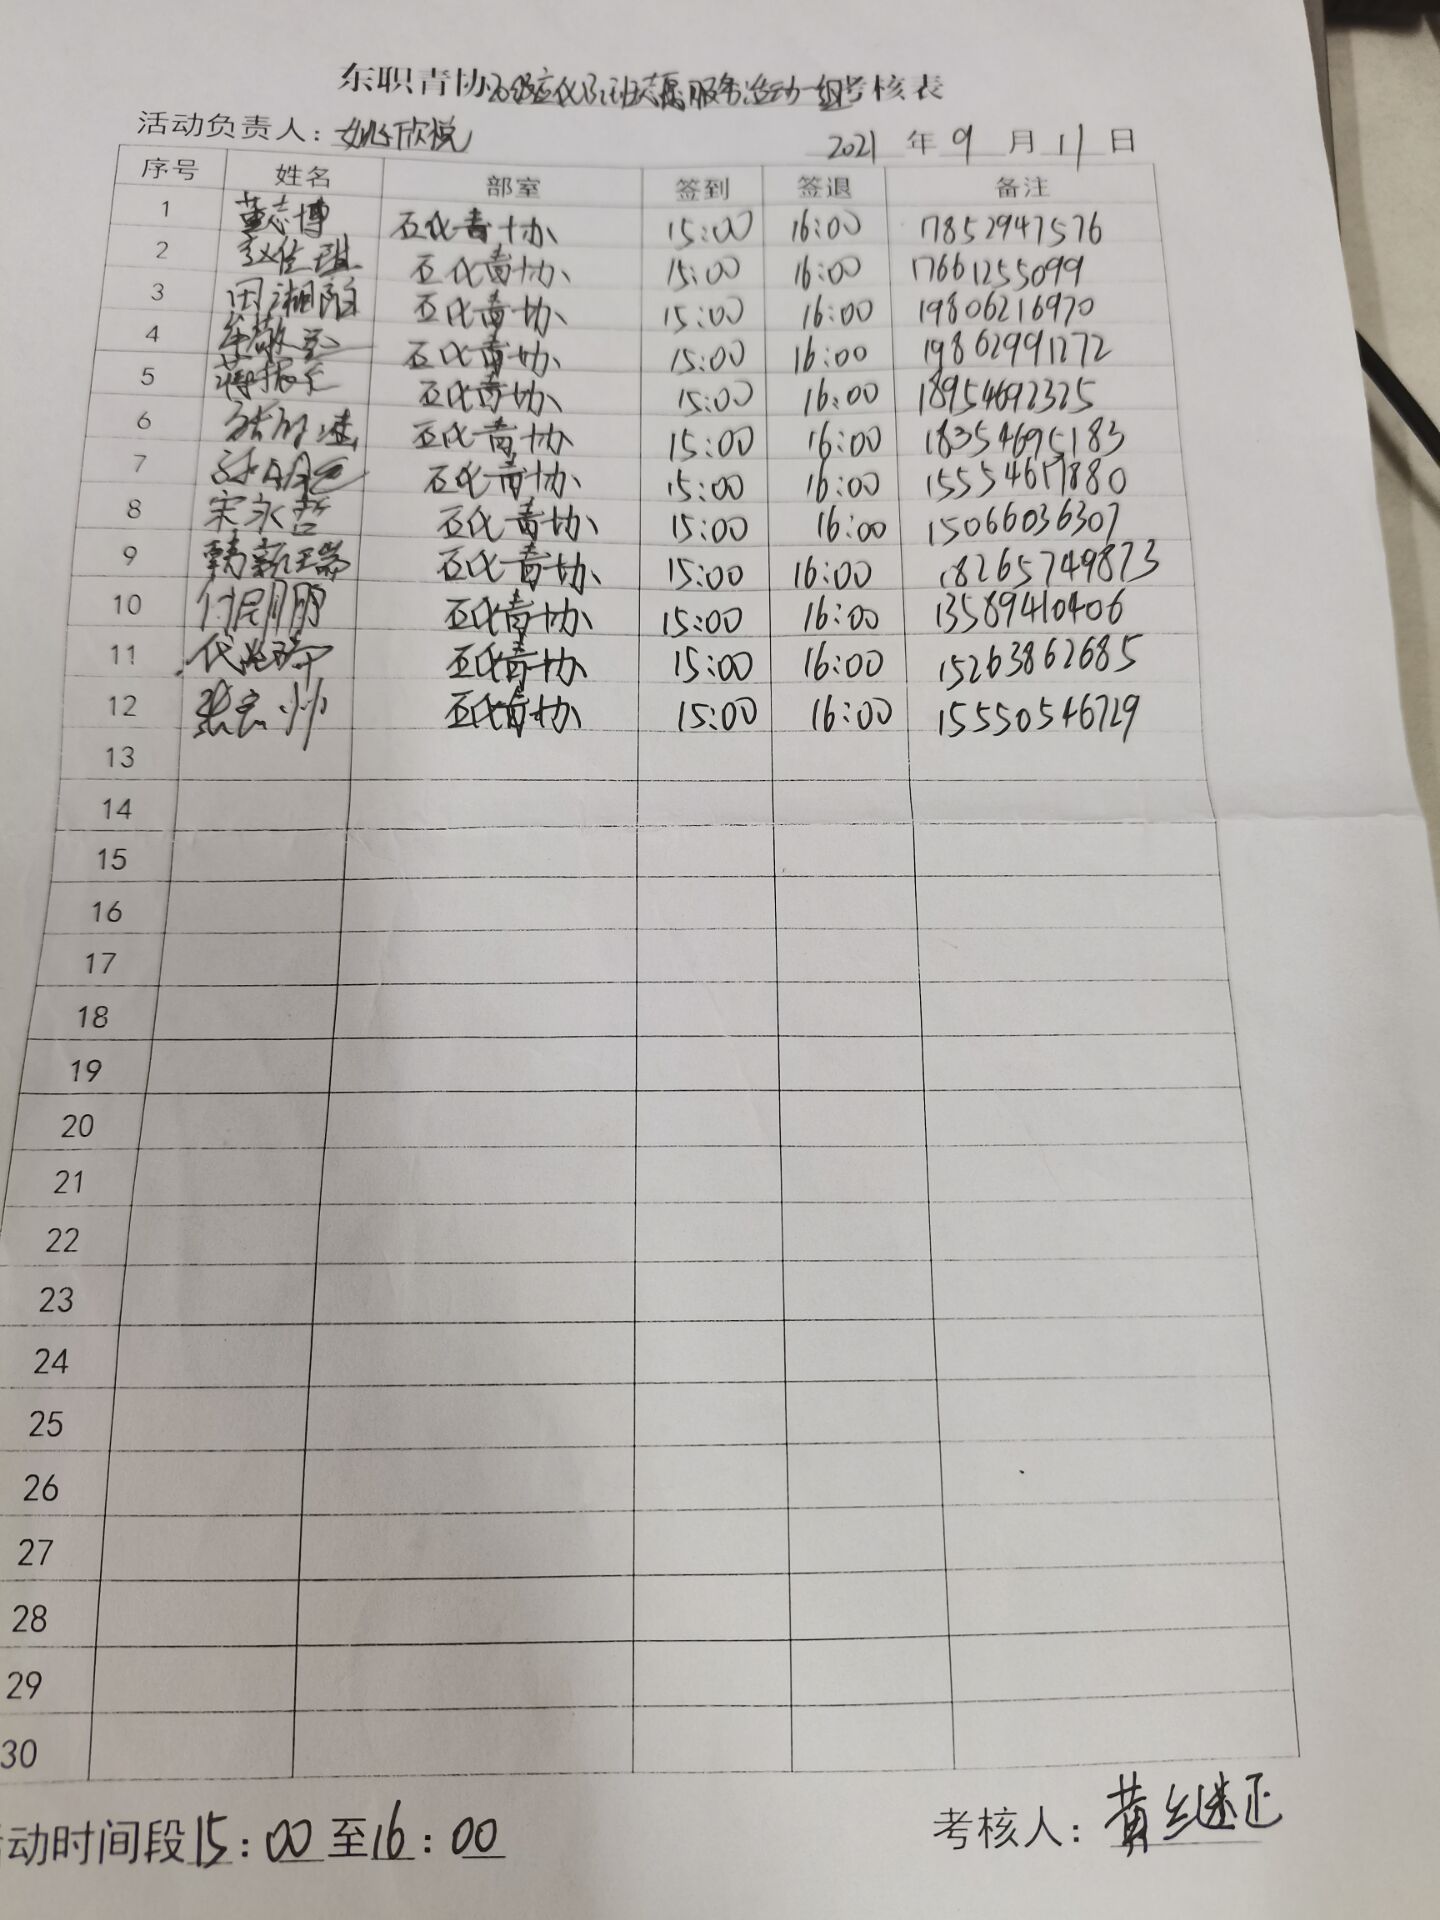 东职青协20级应化5班志愿服务活动一组考核表
活动负责人：姚欣悦 2021 年 9 月 11 日
序号 姓名 部室 签到 签退 备注
1 董志博 石化青协 15:00 16:00 17852947576
2 赵佳琪 石化青协 15:00 16:00 17661255099
3 田湘阳 石化青协 15:00 16:00 19806216970
4 石化青协 15:00 16:00 19862991272
5 蒋振 石化青协 15:00 16:00 18954692325
6 石化青协 15:00 16:00 18354695183
7 石化青协 15:00 16:00 15554617880
8 宋永哲 石化青协 15:00 16:00 15066036307
9 韩新瑞 石化青协 15:00 16:00 18265749873
10 付昆朋 石化青协 15:00 16:00 13589410406
11 代 石化青协 15:00 16:00 15263862685
12 张宏帅 石化青协 15:00 16:00 15550546729
13
14
15
16
17
18
19
20
21
22
23
24
25
26
27
28
29
30
动时间段15：00至16：00 考核人：黄继正